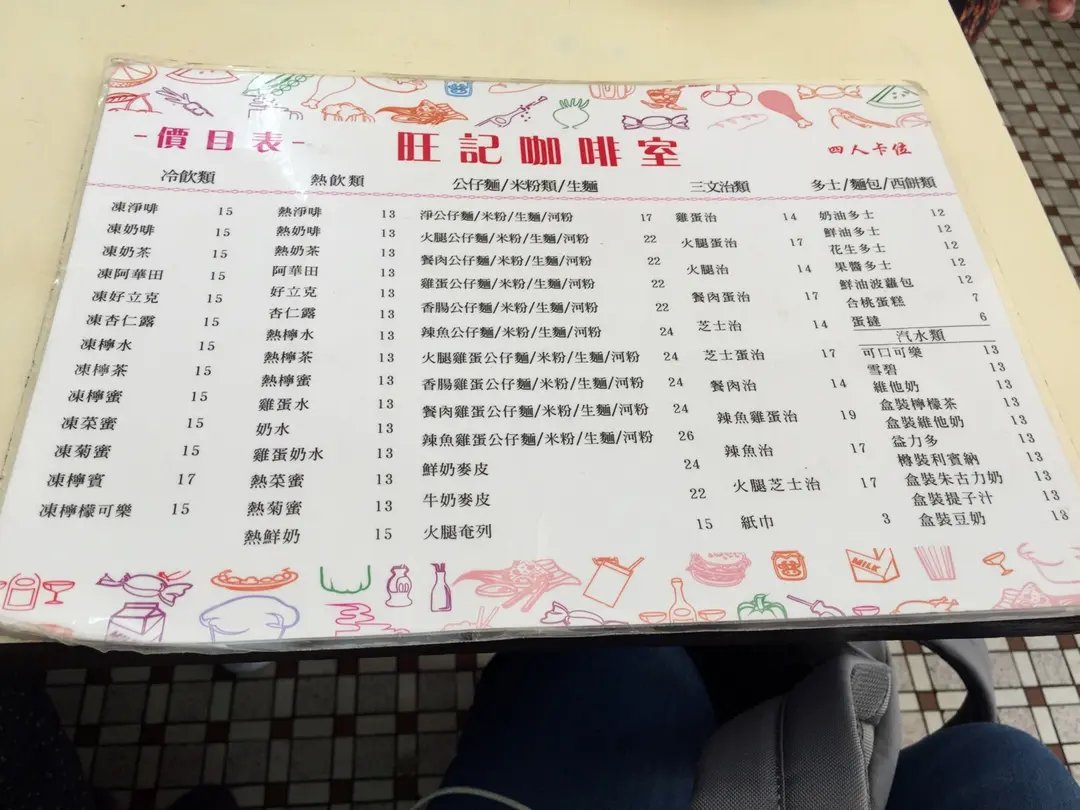 -價目表-
旺記咖啡室
四人卡位
冷飲類
凍淨啡 15
凍奶啡 15
凍奶茶 15
凍阿華田 15
凍好立克 15
凍杏仁露 15
凍檸水 15
凍檸茶 15
凍檸蜜 15
凍菜蜜 15
凍菊蜜 15
凍檸賓 17
凍檸檬可樂 15
熱飲類
熱淨啡 13
熱奶啡 13
熱奶茶 13
阿華田 13
好立克 13
杏仁露 13
熱檸水 13
熱檸茶 13
熱檸蜜 13
雞蛋水 13
奶水 13
雞蛋奶水 13
熱菜蜜 13
熱菊蜜 13
熱鮮奶 15
公仔麵/米粉類/生麵
淨公仔麵/米粉/生麵/河粉 17
火腿公仔麵/米粉/生麵/河粉 22
餐肉公仔麵/米粉/生麵/河粉 22
雞蛋公仔麵/米粉/生麵/河粉 22
香腸公仔麵/米粉/生麵/河粉 22
辣魚公仔麵/米粉/生麵/河粉 24
火腿雞蛋公仔麵/米粉/生麵/河粉 24
香腸雞蛋公仔麵/米粉/生麵/河粉 24
餐肉雞蛋公仔麵/米粉/生麵/河粉 24
辣魚雞蛋公仔麵/米粉/生麵/河粉 26
鮮奶麥皮 24
牛奶麥皮 22
火腿奄列 15
三文治類
雞蛋治 14
火腿蛋治 17
火腿治 14
餐肉蛋治 17
芝士治 14
芝士蛋治 17
餐肉治 14
辣魚雞蛋治 19
辣魚治 17
火腿芝士治 17
紙巾 3
多士/麵包/西餅類
奶油多士 12
鮮油多士 12
花生多士 12
果醬多士 12
鮮油波蘿包 12
合桃蛋糕 7
蛋撻 6
汽水類
可口可樂 13
雪碧 13
維他奶 13
盒裝檸檬茶 13
盒裝維他奶 13
益力多 13
樽裝利賓納 13
盒裝朱古力奶 13
盒裝提子汁 13
盒裝豆奶 13
MILK